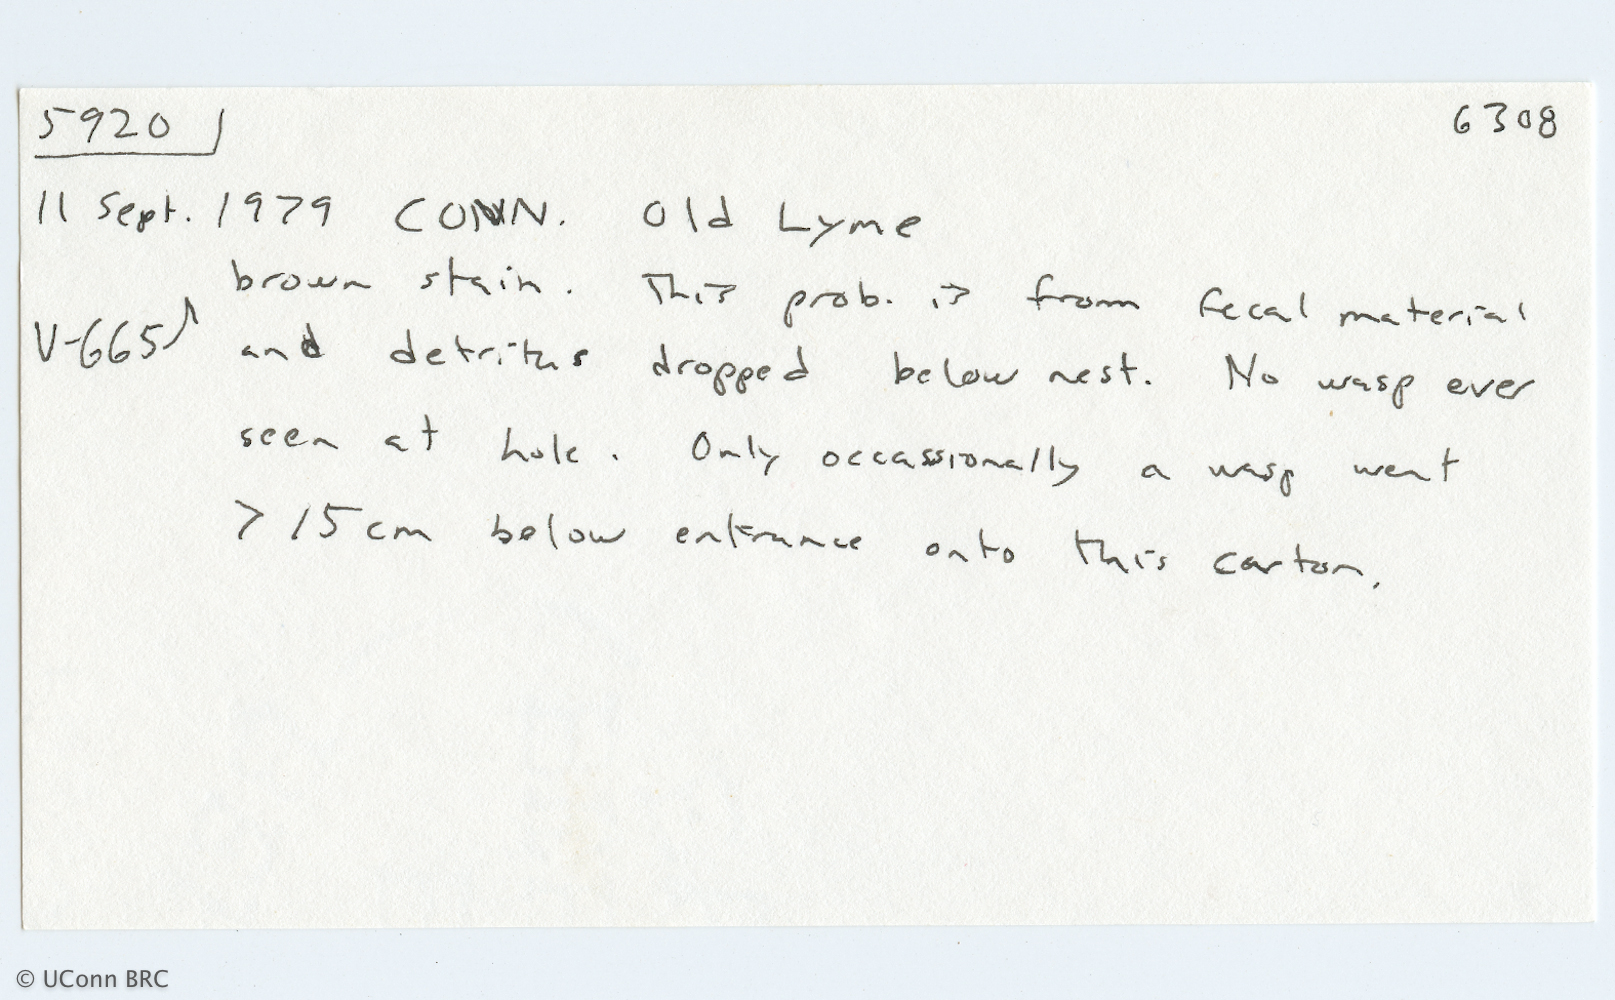 5920 6308
11 Sept. 1979 CONN. Old Lyme
brown stain. This prob. is from fecal material
V-665 and detritus dropped below nest. No wasp ever
seen at hole. Only occassionally a wasp went
> 15 cm below entrance onto this carton.
© UConn BRC